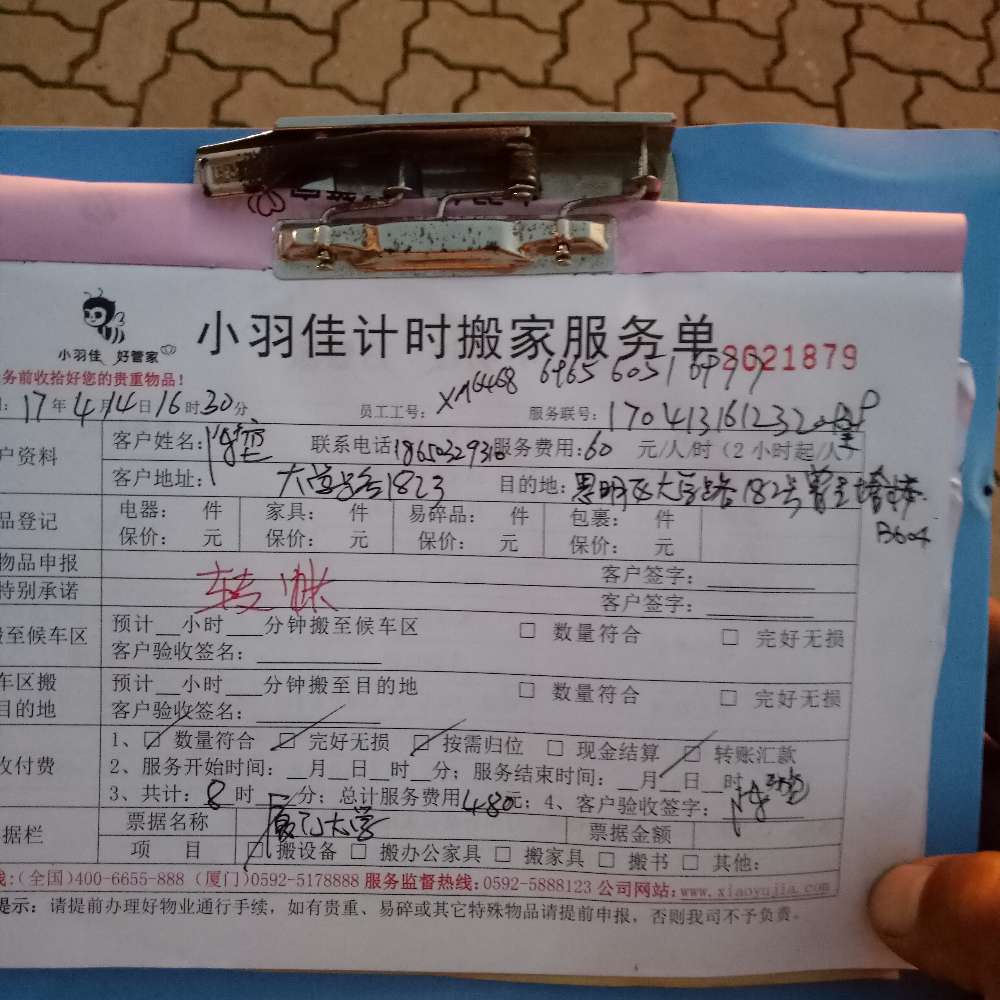 小羽佳 好管家
小羽佳计时搬家服务单
8021879
务前收拾好您的贵重物品！
6465 6051 6499
17年4月14日16时30分 员工工号：XM6468 服务联号：170413161232
户资料 客户姓名： 联系电话 服务费用：60 元/人/时（2小时起/人）
客户地址：大学路182 目的地：思明区大学路182号
B604
品登记 电器： 件 家具： 件 易碎品： 件 包裹： 件
保价： 元 保价： 元 保价： 元 保价： 元
物品申报 客户签字：
特别承诺 转账 客户签字：
搬至候车区 预计__小时___分钟搬至候车区 □ 数量符合 □ 完好无损
客户验收签名：
车区搬 预计__小时___分钟搬至目的地 □ 数量符合 □ 完好无损
目的地 客户验收签名：
1、□ 数量符合 □ 完好无损 □ 按需归位 □ 现金结算 □ 转账汇款
收付费 2、服务开始时间：__月__日__时__分；服务结束时间：__月__日__时__分
3、共计：8时 分；总计服务费用480元；4、客户验收签字：
据栏 票据名称 厦门大学 票据金额
项 目 □ 搬设备 □ 搬办公家具 □ 搬家具 □ 搬书 □ 其他：
线：(全国)400-6655-888 (厦门)0592-5178888 服务监督热线：0592-5888123 公司网站：www.xiaoyujia.com
提示：请提前办理好物业通行手续，如有贵重、易碎或其它特殊物品请提前申报，否则我司不予负责。